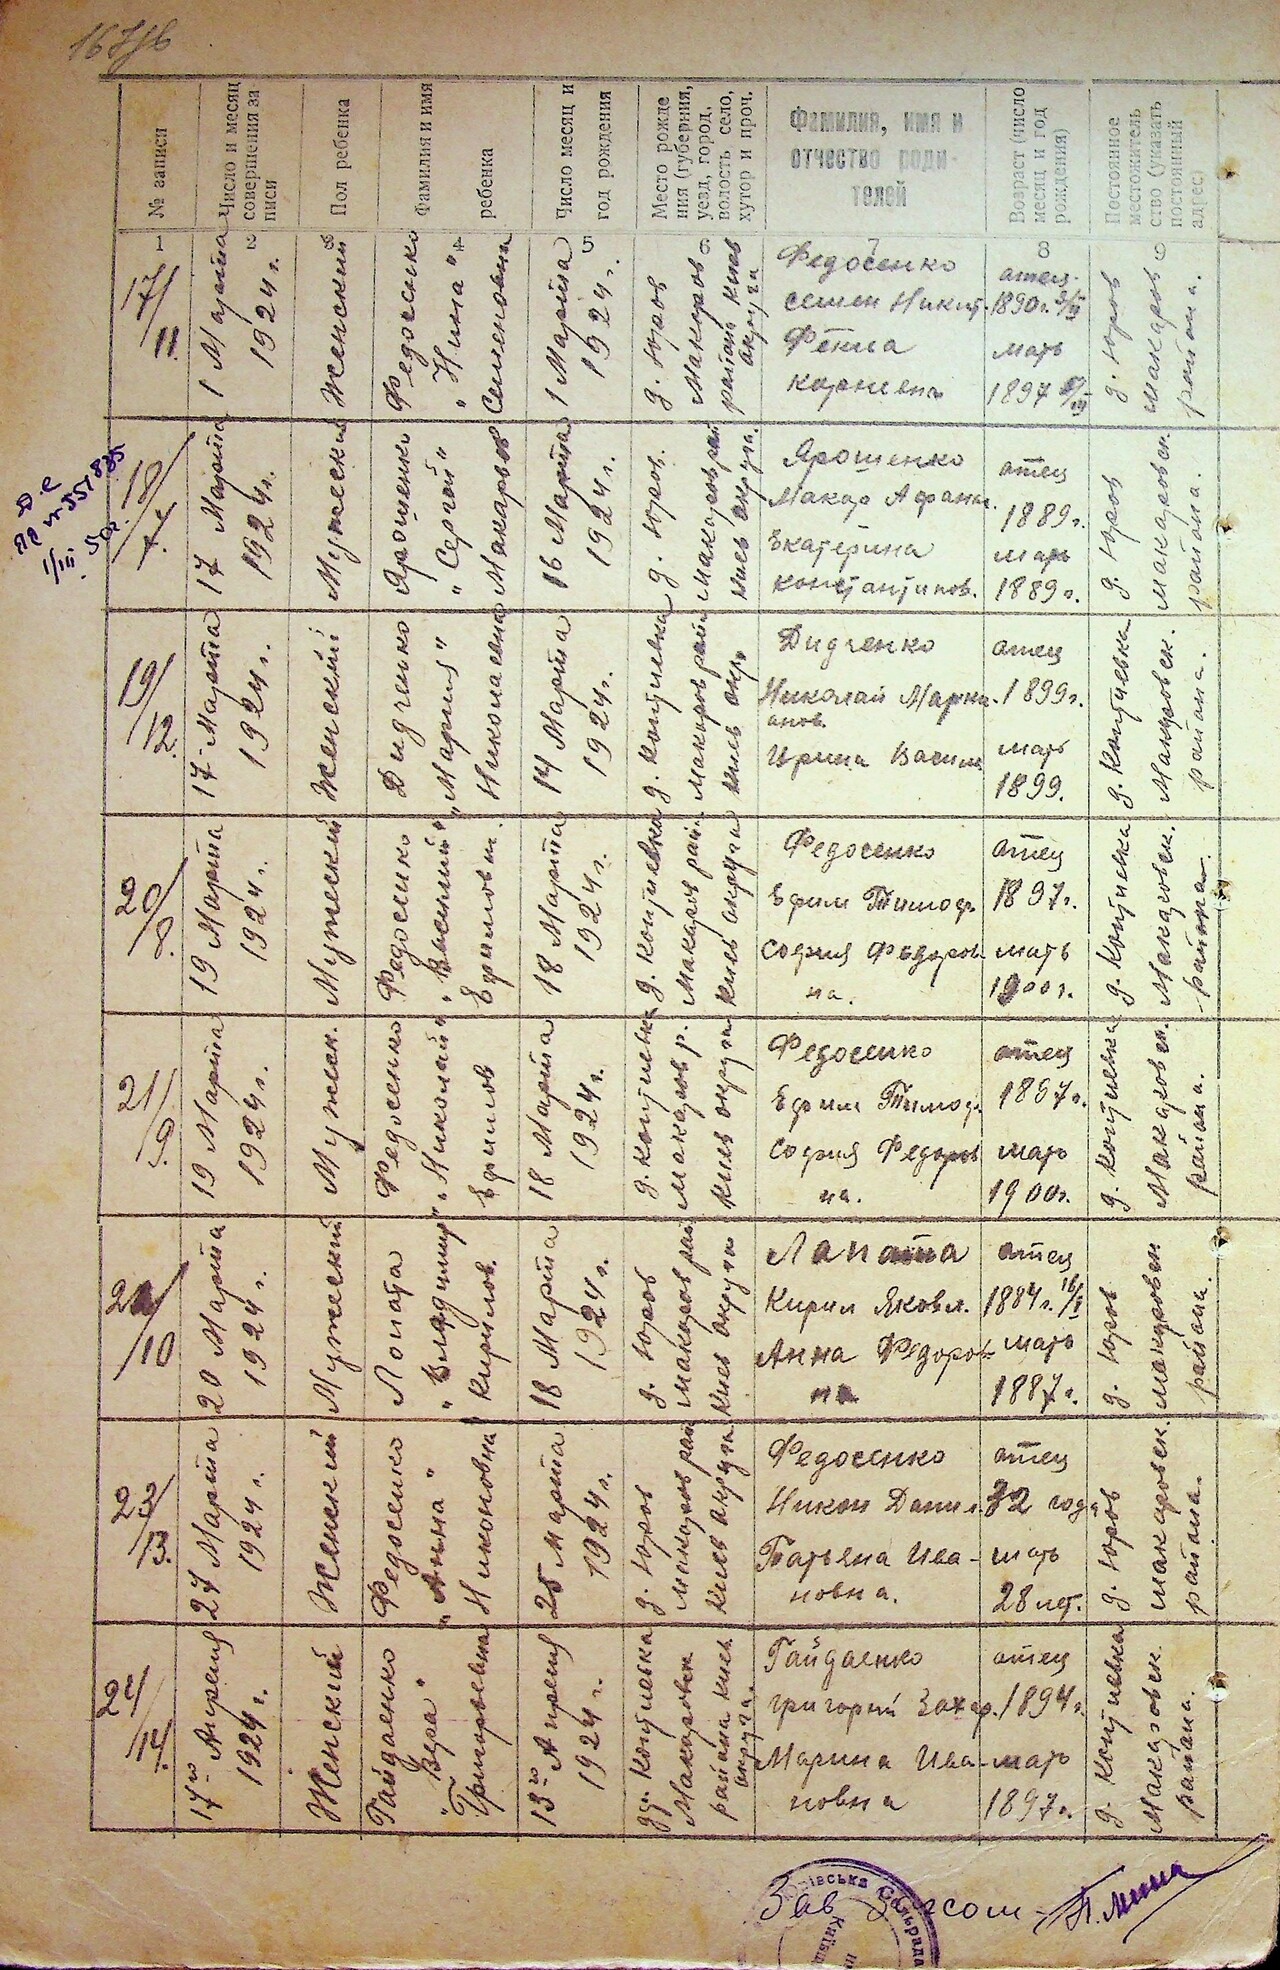 167/16
№ записи
Число и месяц
совершения за
писи
Пол ребенка
Фамилия и имя
ребенка
Число месяц и
год рождения
Место рожде
ния (губерния,
уезд, город,
волость село,
хутор и проч.
Фамилия, имя и
отчество роди-
телей
Возраст (число
месяц и год
рождения)
Постоянное
местожитель
ство (указать
постоянный
адрес)
1
2
3
4
5
6
7
8
17/11.
1 Марта
1924 г.
Женский
Федосенко
"Нина"
Семеновна
1 Марта
1924 г.
д. Юров
Макаров.
района Киев
округа
Федосенко
Семен Никит.
Фенна
Корнеевна
отец.
1890 г.
мать
1897
д. Юров
Макаров
района.
1/III 50г.
18/7.
17 Марта
1924 г.
Мужеский
Ярошенко
"Сергей"
Макаров
16 Марта
1924 г.
д. Юров.
Макаров рай
Киев округа.
Ярошенко
Макар Афанас.
Екатерина
Константинов.
отец
1889 г.
мать
1889 г.
д. Юров
Макаровск
района.
19/12.
17 Марта
1924 г.
Женский
Дидченко
"Мария"
Николаевна
14 Марта
1924 г.
д. Копиевка
Макаров рай.
Киев окр.
Дидченко
Николай Марки
анов.
Ирина Васил.
отец
1899 г.
мать
1899.
д. Копиевка
Макаровск.
района.
20/8.
19 Марта
1924 г.
Мужеский
Федосенко
"Василий"
Ефимович.
18 Марта
1924 г.
д. Копиевка
Макаров рай.
Киев округа
Федосенко
Ефим Тимоф.
София Федоров
на.
отец
1897 г.
мать
1900 г.
д. Копиевка
Макаровск.
района.
21/9.
19 Марта
1924 г.
Мужеск.
Федосенко
"Николай"
Ефимов
18 Марта
1924 г.
д. Копиевка
Макаров р.
Киев округа
Федосенко
Ефим Тимоф.
София Федоров
на.
отец
1897 г.
мать
1900 г.
д. Копиевка
Макаровск.
района.
22/10
20 Марта
1924 г.
Мужеский
Лопата
"Владимир"
Кирилов.
18 Марта
1924 г.
д. Юров
Макаров рай
Киев округа
Лапата
Кирил Яковл.
Анна Федоров
на
отец
1884 г.
мать
1887 г.
д. Юров
Макаровск
района.
23/13.
27 Марта
1924 г.
Женский
Федосенко
"Анна"
Никоновна
25 Марта
1924 г.
д. Юров
Макаров рай
Киев округа
Федосенко
Никон Данил.
Татьяна Ива-
новна.
отец
32 года
мать
28 лет.
д. Юров
Макаровск.
района.
24/14.
17го Апреля
1924 г.
Женский
Гайдаенко
"Вера"
Григорьевна
13го Апреля
1924 г.
дд. Копиевка
Макаровск
района Киев
округа.
Гайдаенко
Григорий Захар.
Марина Ива-
новна
отец
1894 г.
мать
1897 г.
д. Копиевка
Макаровск.
района.
Зав Загсом